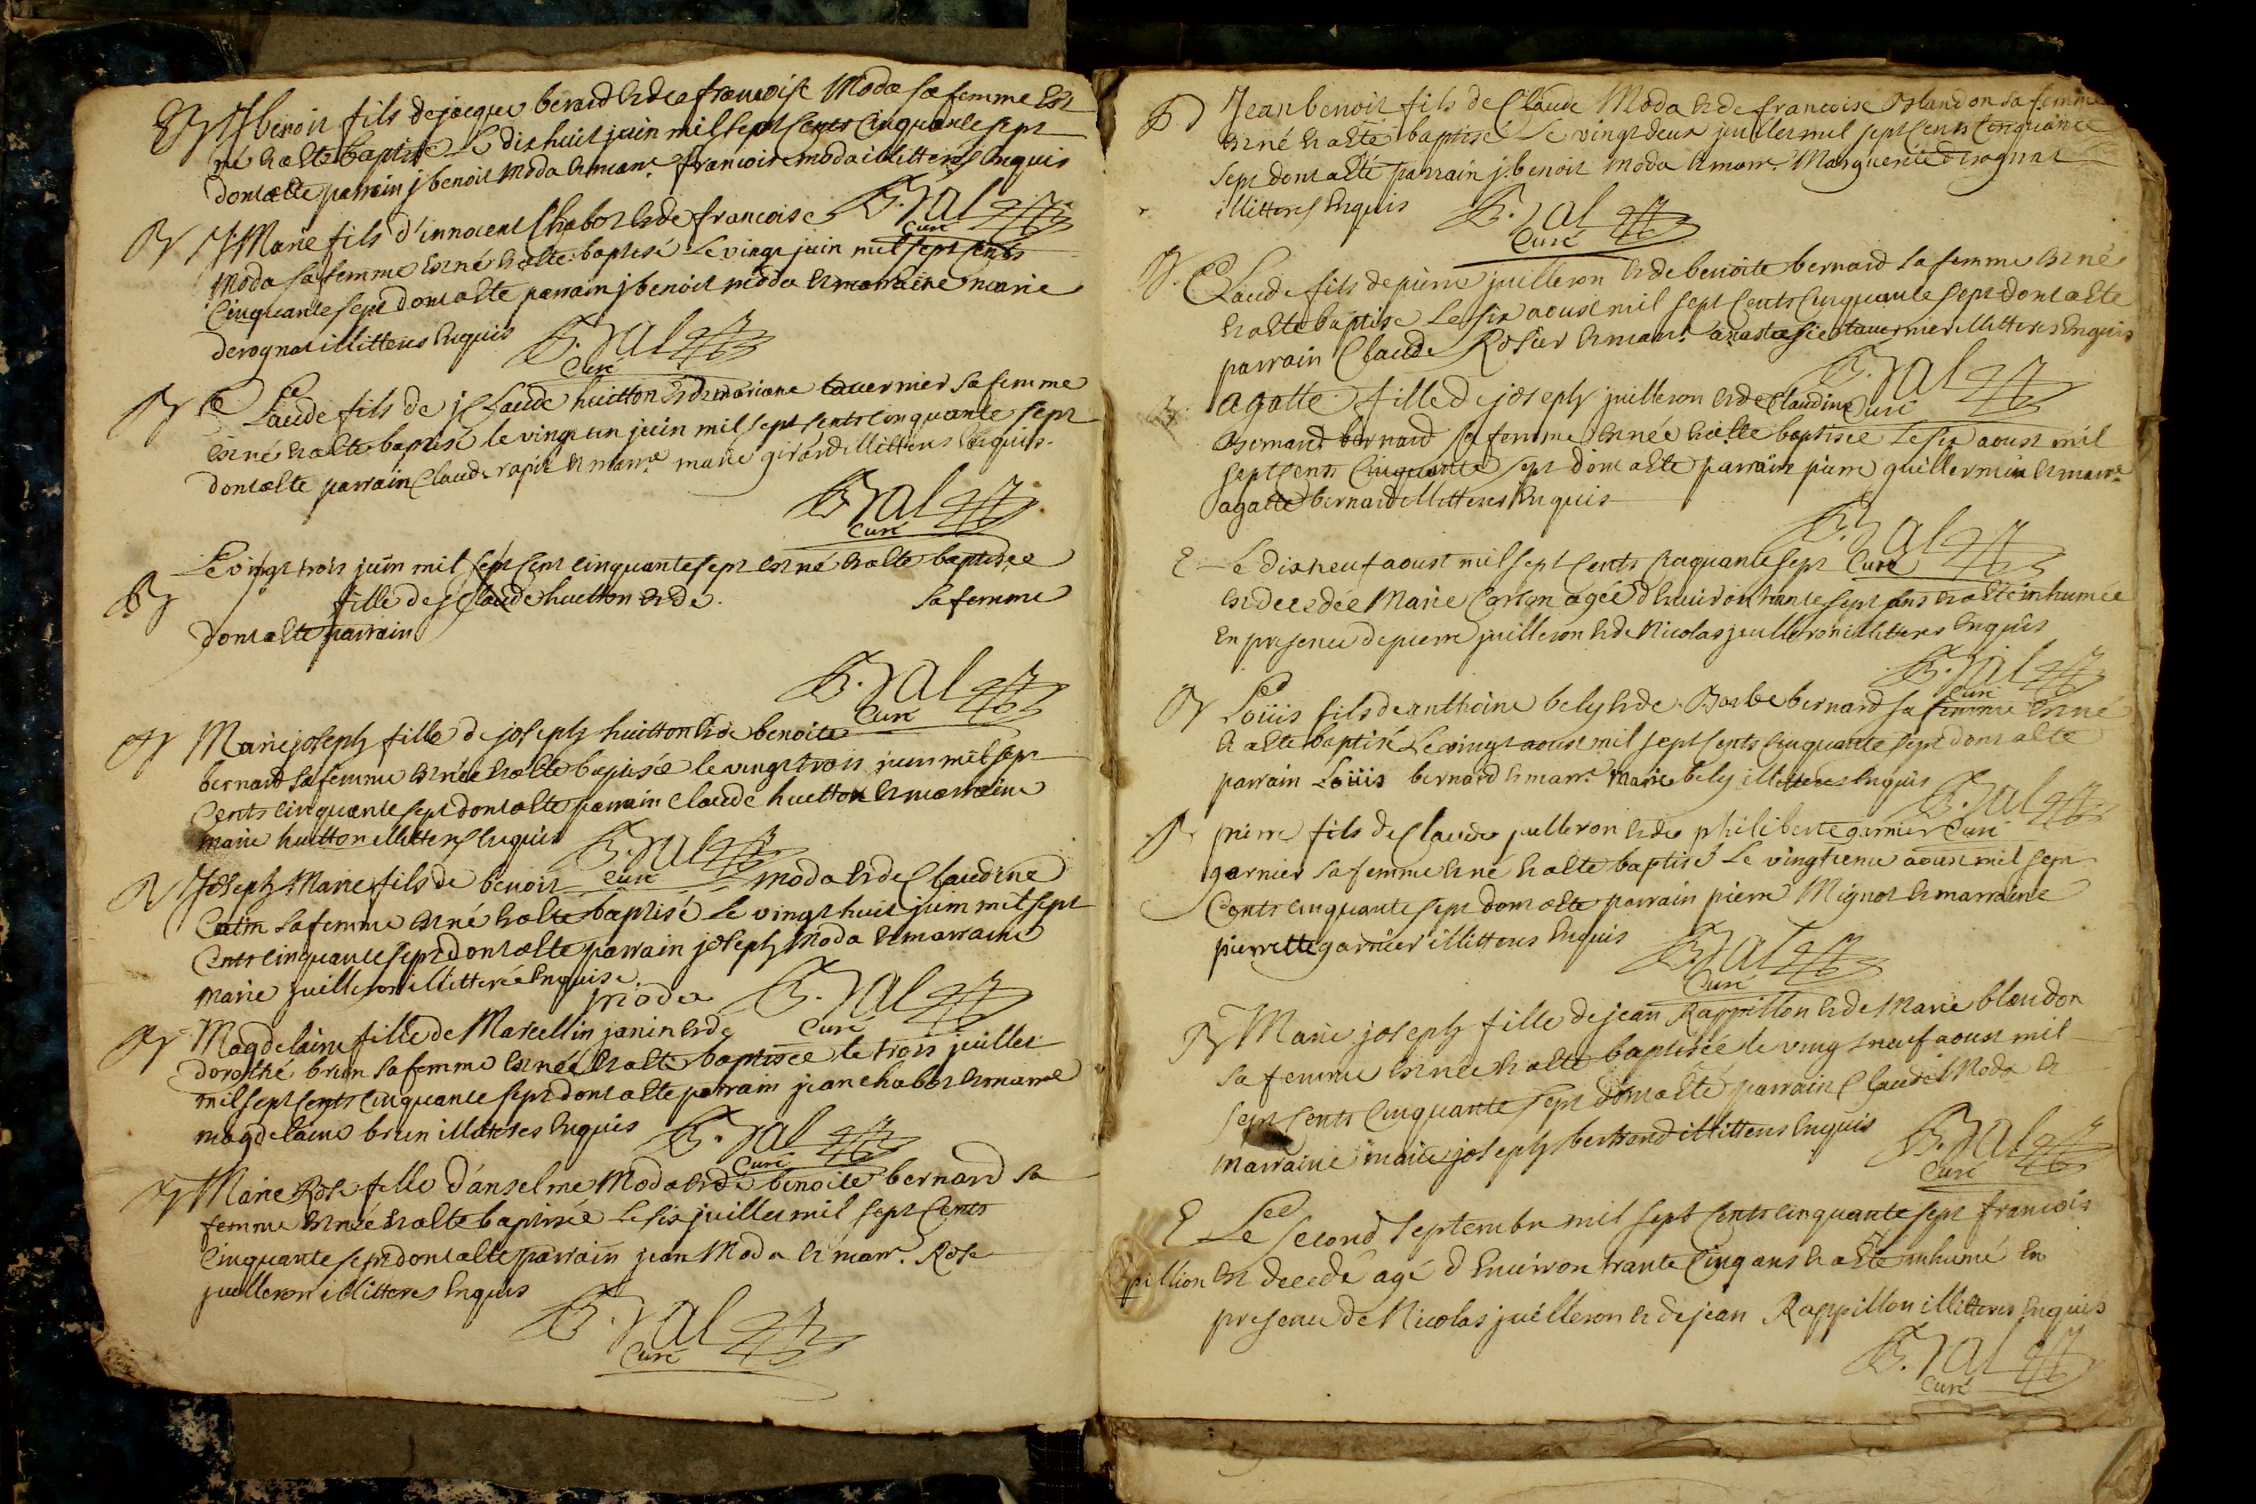 J benoit fils de jacque berard et de francoise Moda sa femme est
né et a eté baptisé Le dix huit juin mil sept cents cinquante sept
dont a eté parrain j benoit Moda et marr.e francoise moda illitterés enquis
B. Ial
Curé
J. Marie fils d'innocent Chabot et de francoise
Moda sa femme est né et a eté baptisé Le vingt juin mil sept cents
Cinquante sept dont a eté parrain j benoit moda et marraine marie
derognat illitteres enquis
B. Ial
Curé
Claude fils de j Claude huitton et de mariane tavernier sa femme
est né et a eté baptisé le vingt un juin mil sept cents cinquante sept
dont a eté parrain Claude rapit et marr.e marie girard illitteres enquis.
B. Ial
Curé
Le vingt trois juin mil sept cent cinquante sept est né et a eté baptisée
fille de j Claude huitton et de sa femme
dont a eté parrain
B. Ial
Curé
Marie joseph fille de joseph huitton et de benoite
bernard sa femme est née et a eté baptisée le vingt trois juin mil sept
Cents cinquante sept dont a eté parrain Claude huitton et marraine
marie huitton illitteres enquis
B. Ial
Curé
Joseph Marie fils de benoit moda et de Claudine
sa femme est né et a eté baptisé Le vingt huit juin mil sept
Cents cinquante sept dont a eté parrain joseph Moda et marraine
Marie juilleron illitterée enquise.
B. Ial
Curé
moda
Magdelaine fille de Marcellin janin et de
dorothé brun sa femme est née et a eté baptisée le trois juillet
mil sept cents cinquante sept dont a eté parrain jean chabot et marr.e
magdelaine brun illitteres enquis
B. Ial
Curé
Marie Rose fille d'anselme Moda et de benoite bernard sa
femme est née et a eté baptisée Le six juillet mil sept cents
Cinquante sept dont a eté parrain jean Moda et marr.e Rose
juilleron illitteres enquis
B. Ial
Curé
Jean benoit fils de Claude Moda et de francoise blandon sa femme
est né et a eté baptisé Le vingt deux juillet mil sept cents cinquante
sept dont a eté parrain j. benoit Moda et marr.e Marguerite derognat
illitteres enquis
B. Ial
Curé
Claude fils de pierre juilleron et de benoite bernard sa femme est né
et a eté baptisé Le six aoust mil sept cents cinquante sept dont a eté
parrain Claude Rosier et marr.e anastasie tavernier illitteres enquis
B. Ial
Curé
agatte fille de joseph juilleron et de Claudine
bernard sa femme est née et a eté baptisée Le six aoust mil
sept cents Cinquante sept dont a eté parrain pierre guillermin et marr.e
agatte bernard illitteres enquis
B. Ial
Curé
Le dix neuf aoust mil sept cents cinquante sept
est decedée Marie agée d'environ trante sept ans et a eté inhumée
en presence de pierre juilleron et de Nicolas juilleron illitteres enquis
B. Ial
Curé
Loüis fils de anthoine bely et de Barbe bernard sa femme est né
et a eté baptisé Le vingt aoust mil sept cents cinquante sept dont a eté
parrain Loüis bernard et marr.e marie bely illitteres enquis
B. Ial
Curé
pierre fils de Claude juilleron et de philiberte garnier
garnier sa femme est né et a eté baptisé Le vingtieme aoust mil sept
Cents cinquante sept dont a eté parrain pierre Mignot et marraine
pierrette garnier illitteres enquis
B. Ial
Curé
Marie joseph fille de jean Rappillon et de Marie blandon
sa femme est née et a eté baptisée le vingt neuf aoust mil
sept cents cinquante sept dont a eté parrain Claude Moda et
marraine marie joseph bertrand illitteres enquis
B. Ial
Curé
Le second septembre mil sept cents cinquante sept francois
pillion est decedé agé d'environ trante cinq ans et a eté inhumé en
presence de Nicolas juilleron et de jean Rappillon illitteres enquis
B. Ial
Curé